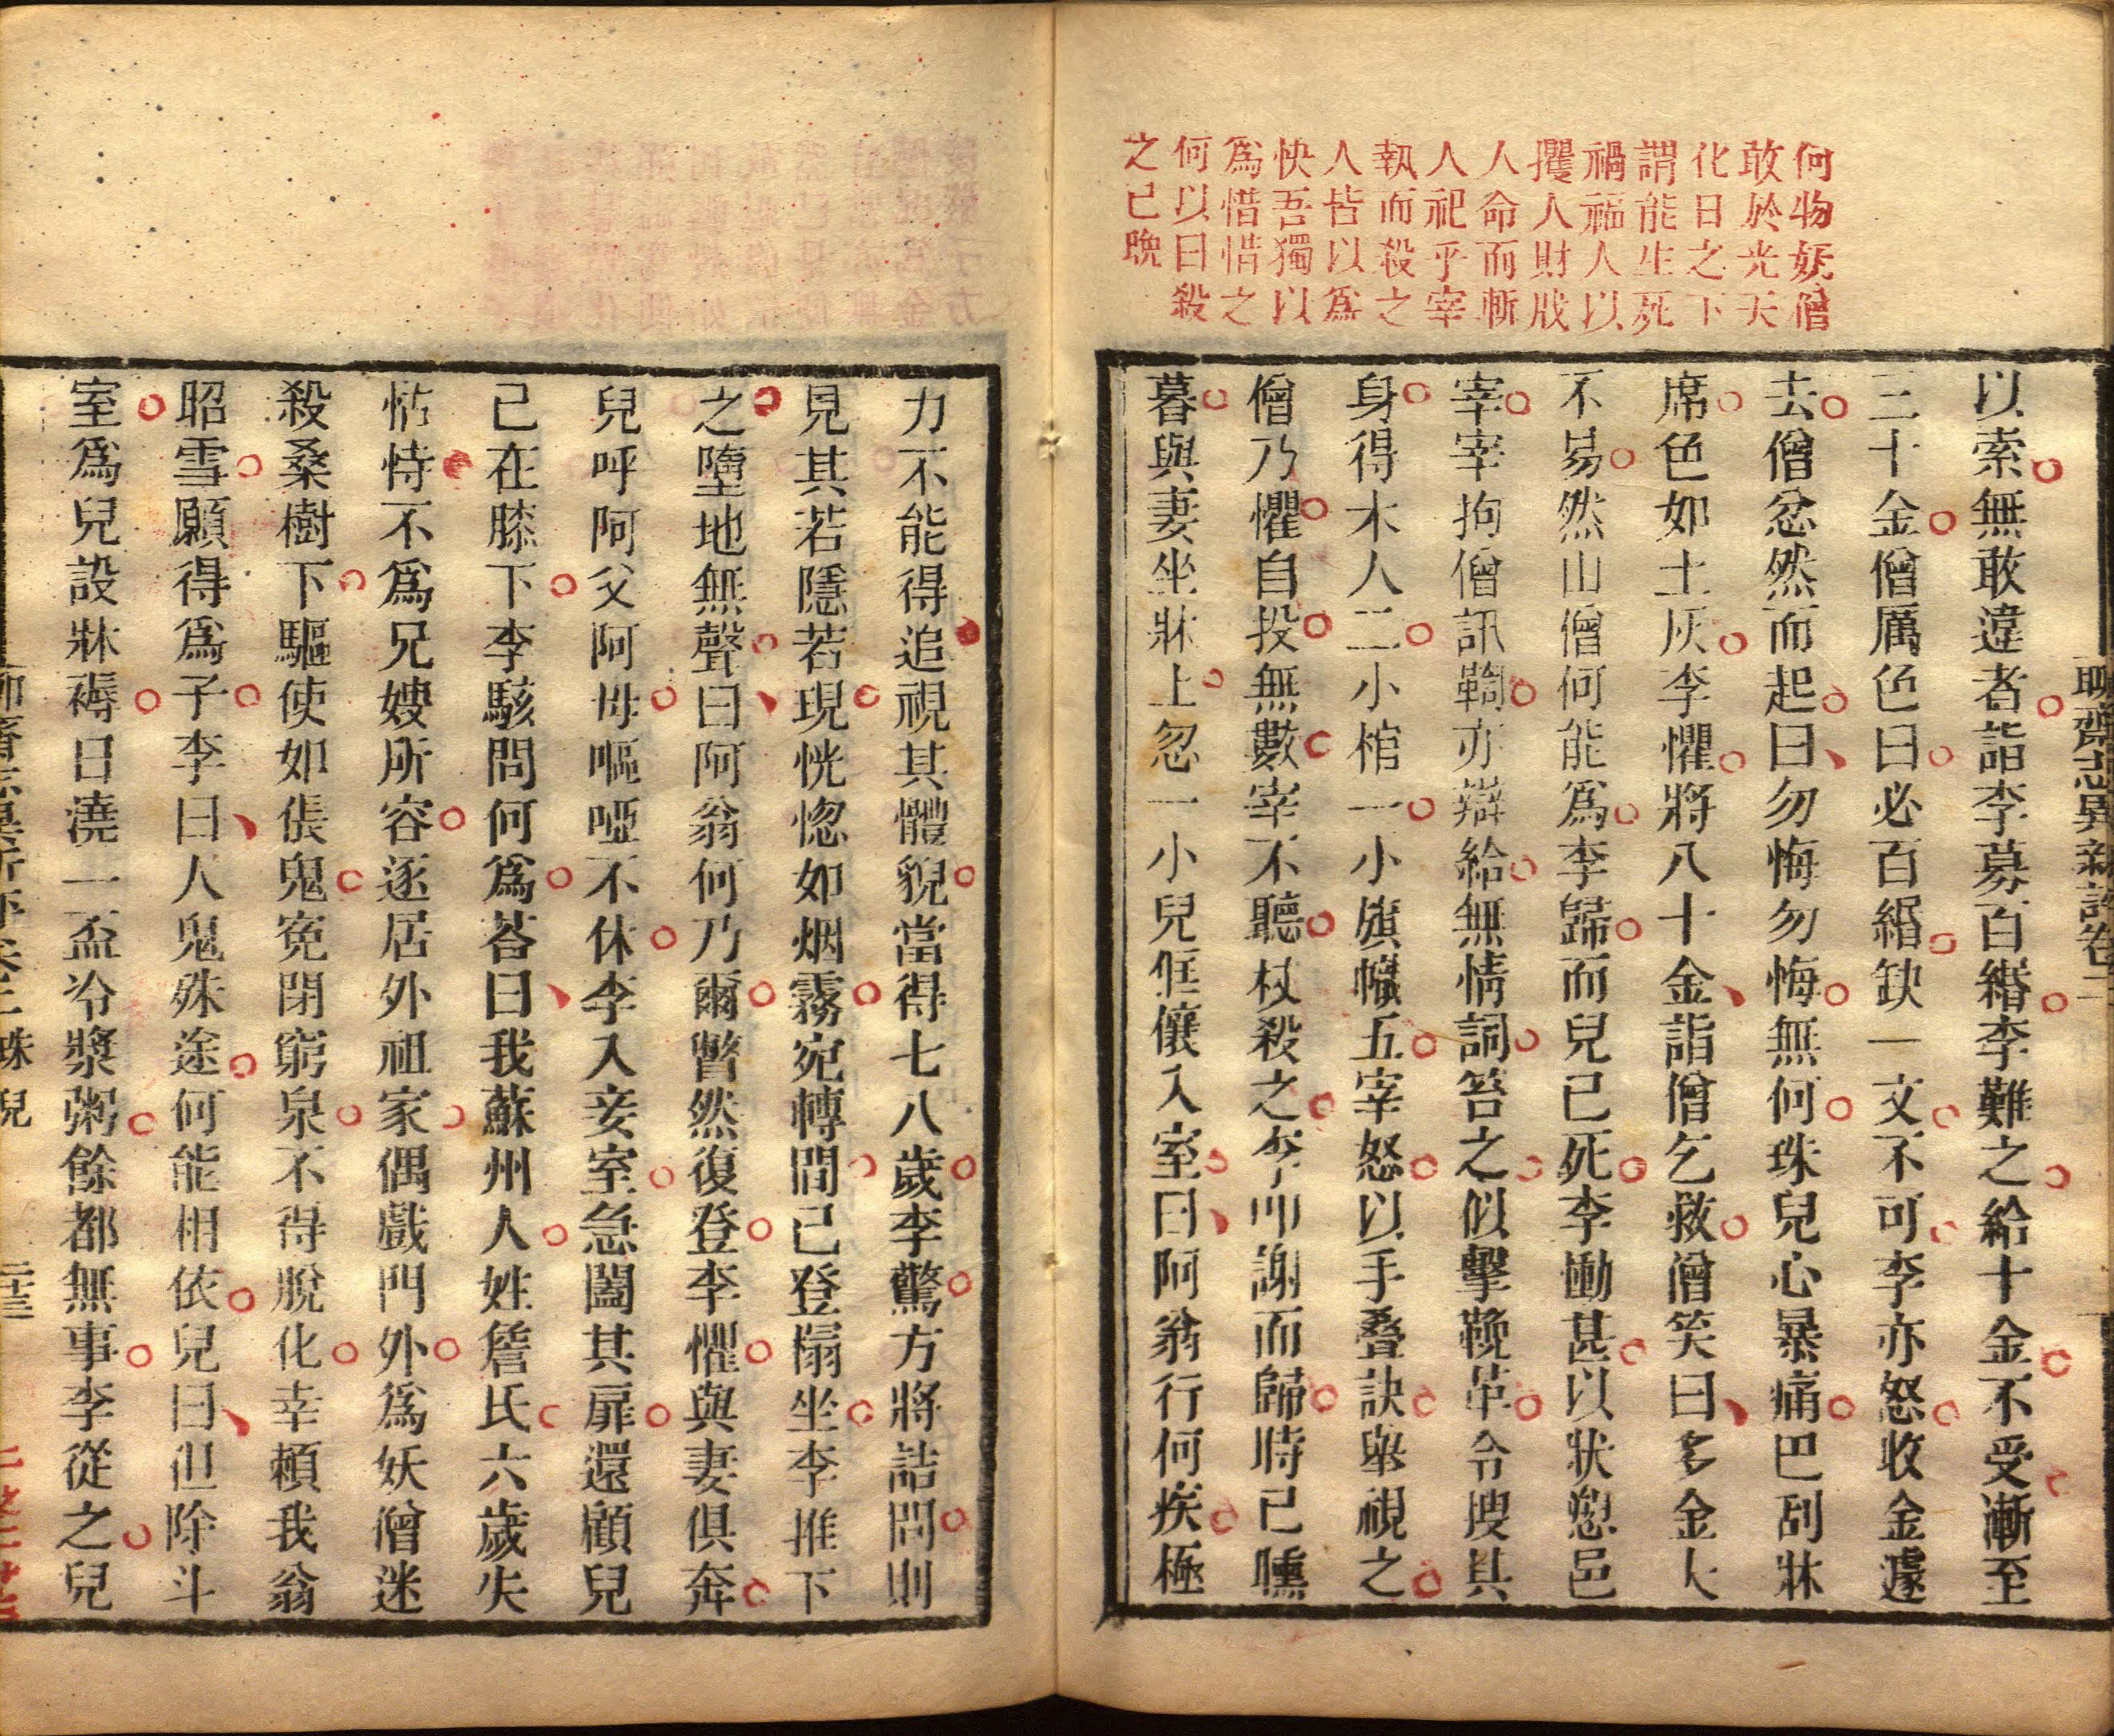 何物妖僧
敢於光天
化日之下
謂能生死
禍福人以
攫人財戕
人命而斬
人祀乎宰
執而殺之
人皆以爲
快吾獨以
爲惜惜之
何以曰殺
之已晚
聊齋志異新評卷二
以索無敢違者詣李募百緡李難之給十金不受漸至
三十金僧厲色曰必百緡缺一文不可李亦怒收金遽
去僧忿然而起曰勿悔勿悔無何珠兒心暴痛巴刮牀
席色如土灰李懼將八十金詣僧乞救僧笑曰多金大
不易然山僧何能爲李歸而兒已死李慟甚以狀愬邑
宰宰拘僧訊鞫亦辯給無情詞笞之似擊鞔革令搜其
身得木人二小棺一小旗幟五宰怒以手叠訣舉視之
僧乃懼自投無數宰不聽杖殺之李叩謝而歸時已曛
暮與妻坐牀上忽一小兒俇儴入室曰阿翁行何疾極
力不能得追視其體貌當得七八歲李驚方將詰問則
見其若隱若現恍惚如烟霧宛轉間已登榻坐李推下
之墮地無聲曰阿翁何乃爾瞥然復登李懼與妻俱奔
兒呼阿父阿母嘔啞不休李入妾室急闔其扉還顧兒
已在膝下李駭問何爲荅曰我蘇州人姓詹氏六歲失
怙恃不爲兄嫂所容逐居外祖家偶戲門外爲妖僧迷
殺桑樹下驅使如倀鬼冤閉窮泉不得脫化幸賴我翁
昭雪願得爲子李曰人鬼殊途何能相依兒曰但除斗
室爲兒設牀褥日澆一盃冷漿粥餘都無事李從之兒
聊齋志異新評卷二 珠兒 三十三